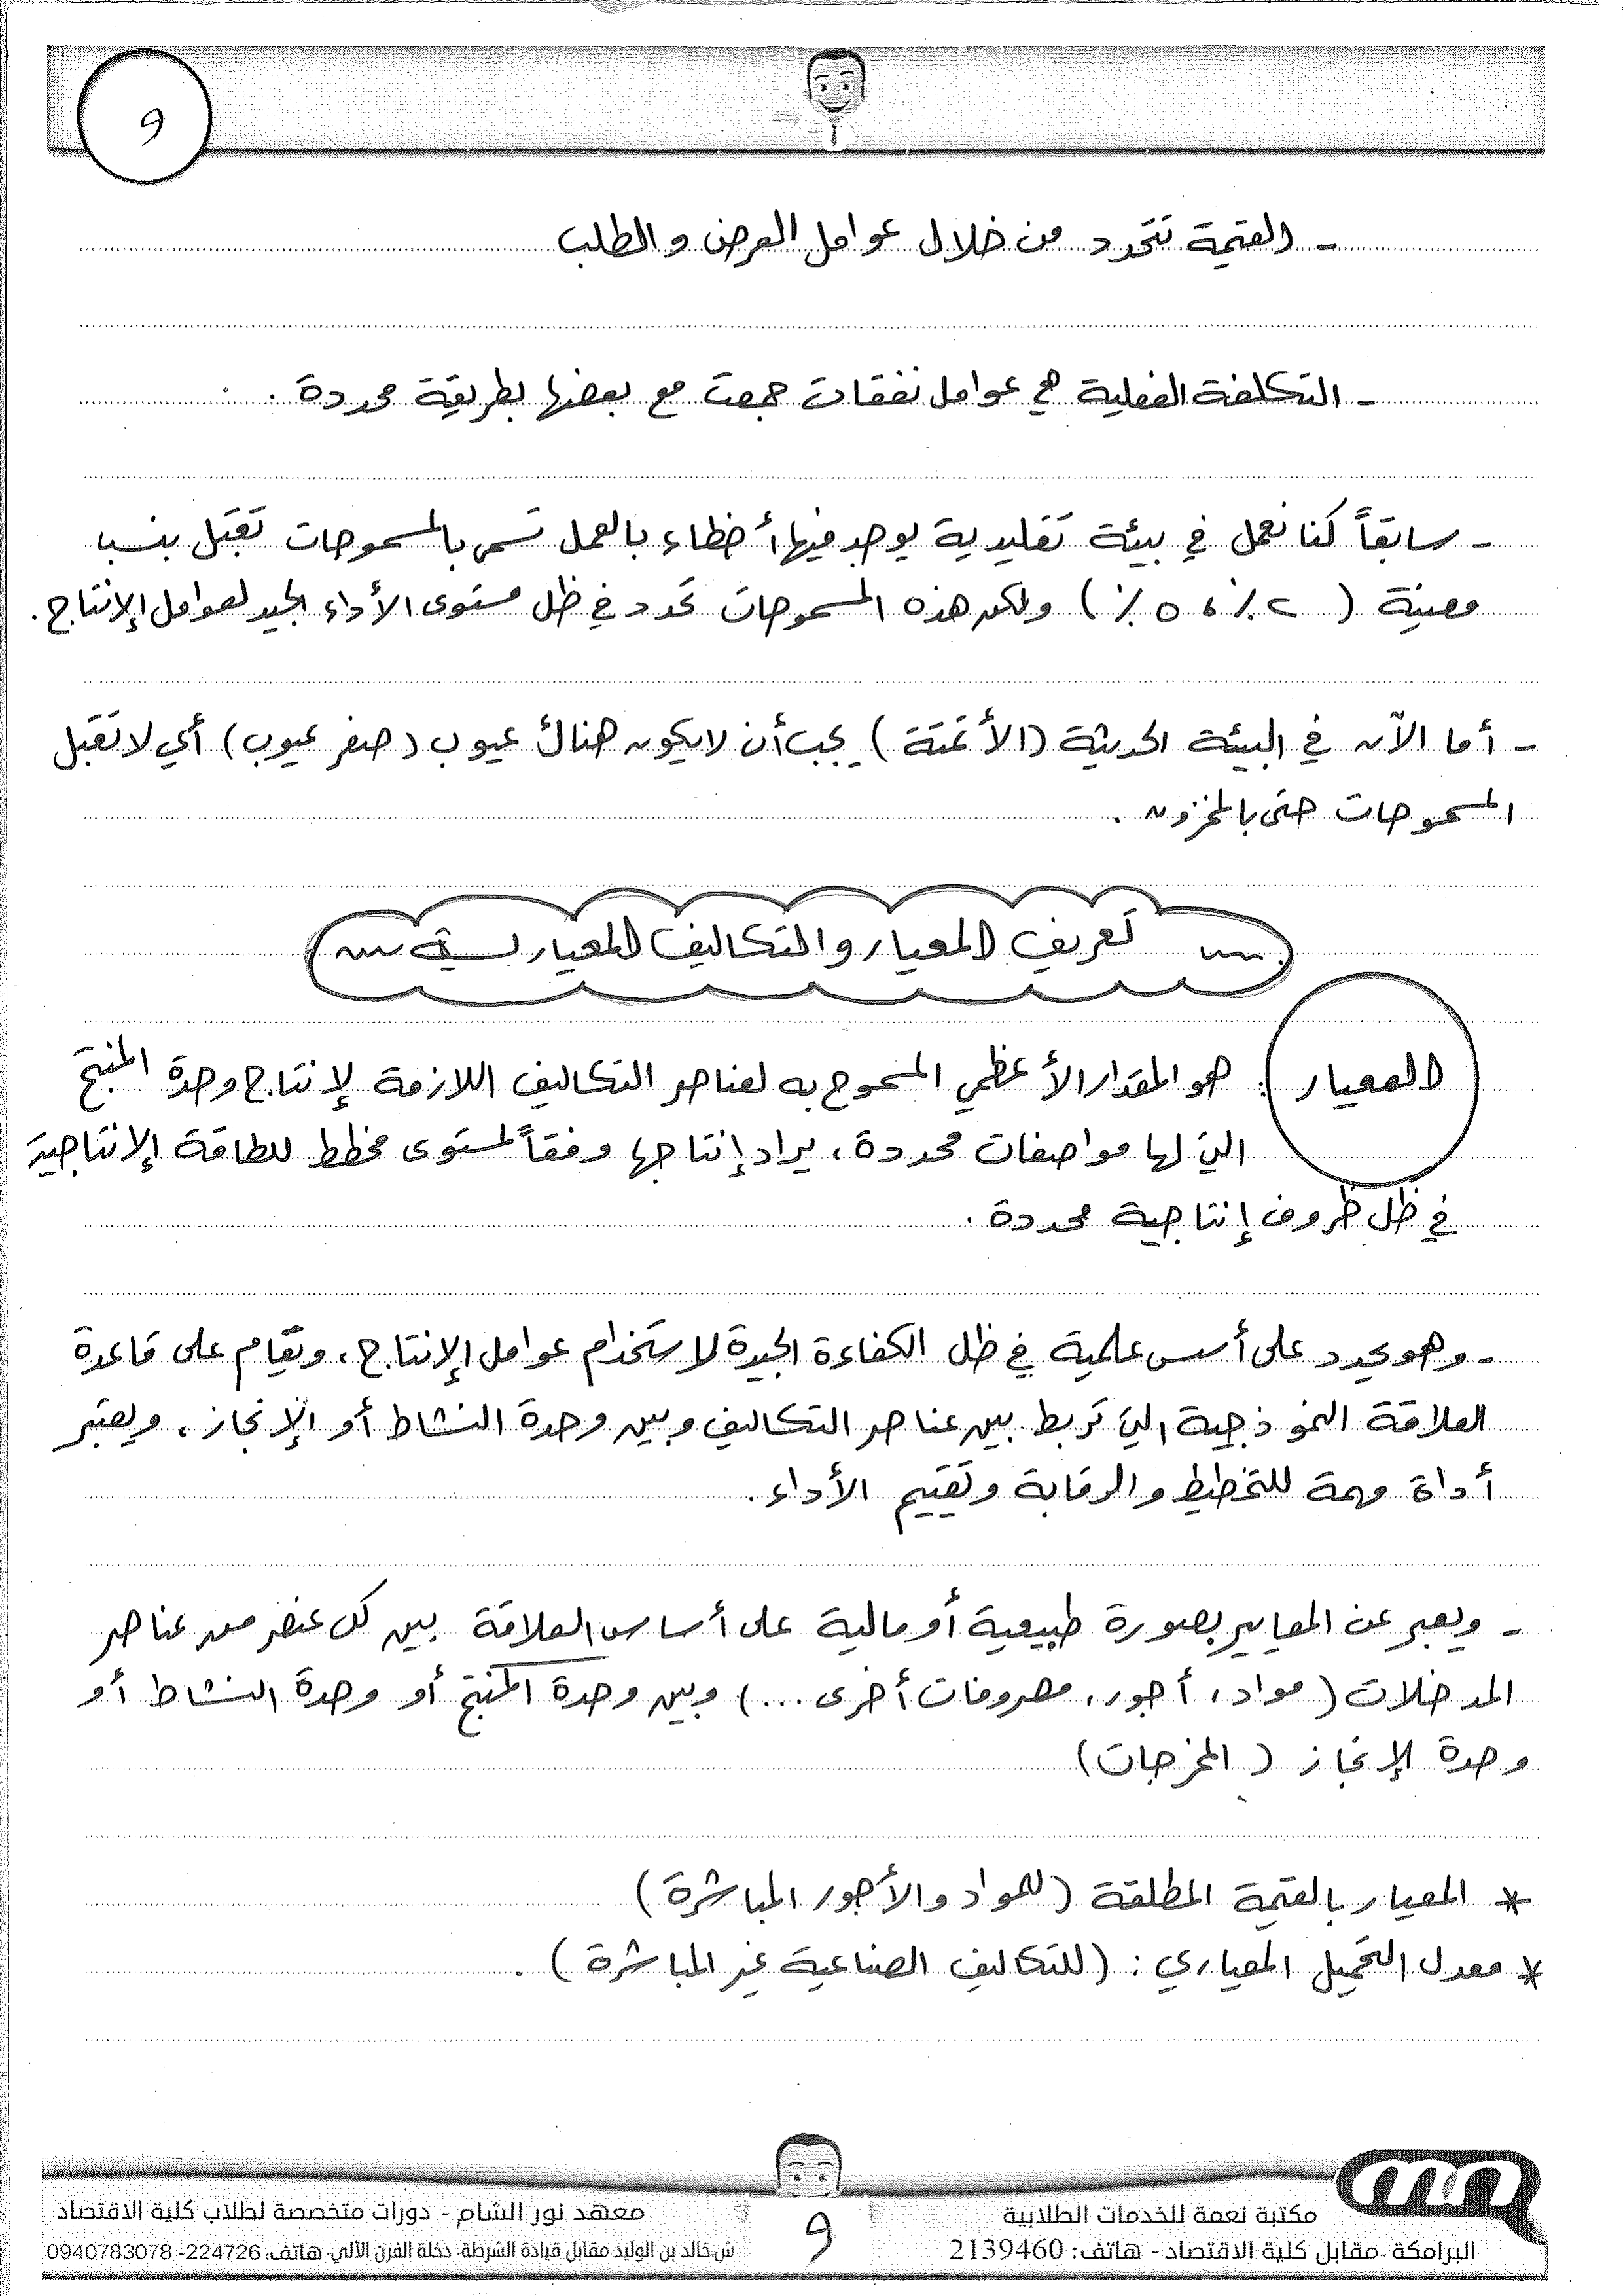 9
- القيمة تتحدد من خلال عوامل العرض والطلب
- التكلفة الفعلية هي عوامل نفقات جمعت مع بعضها بطريقة محددة .
- سابقاً كنا نعمل في بيئة تقليدية يوجد فيها أخطاء بالعمل تسمى بالمسموحات تقبل بنسبة
معينة ( ٢٪ ، ٥٪ ) ولكن هذه المسموحات تحدد في ظل مستوى الأداء الجيد لعوامل الإنتاج .
- أما الآن في البيئة الحديثة (الأتمتة) يجب أن لا يكون هناك عيوب (صفر عيوب) أي لا تقبل
المسموحات حتى بالمخزون .
تعريف المعيار والتكاليف المعيارية
المعيار : هو المقدار الأعظمي المسموح به لعناصر التكاليف اللازمة لإنتاج وحدة المنتج
التي لها مواصفات محددة ، يراد إنتاجها وفقاً لمستوى مخطط للطاقة الإنتاجية
في ظل ظروف إنتاجية محددة .
- وهو يحدد على أسس علمية في ظل الكفاءة الجيدة لاستخدام عوامل الإنتاج ، وتقام على قاعدة
العلاقة النموذجية التي تربط بين عناصر التكاليف وبين وحدة النشاط أو الإنجاز ، ويعتبر
أداة مهمة للتخطيط والرقابة وتقييم الأداء .
- ويعبر عن المعايير بصورة طبيعية أو مالية على أساس العلاقة بين كل عنصر من عناصر
المدخلات ( مواد ، أجور ، مصروفات أخرى ... ) وبين وحدة المنتج أو وحدة النشاط أو
وحدة الإنجاز ( المخرجات )
* المعيار بالقيمة المطلقة ( للمواد والأجور المباشرة )
* معدل التحميل المعياري : ( للتكاليف الصناعية غير المباشرة ) .
مكتبة نعمة للخدمات الطلابية
البرامكة - مقابل كلية الاقتصاد - هاتف: 2139460
9
معهد نور الشام - دورات متخصصة لطلاب كلية الاقتصاد
ش.خالد بن الوليد-مقابل قيادة الشرطة- دخلة الفرن الآلي- هاتف: 224726- 0940783078